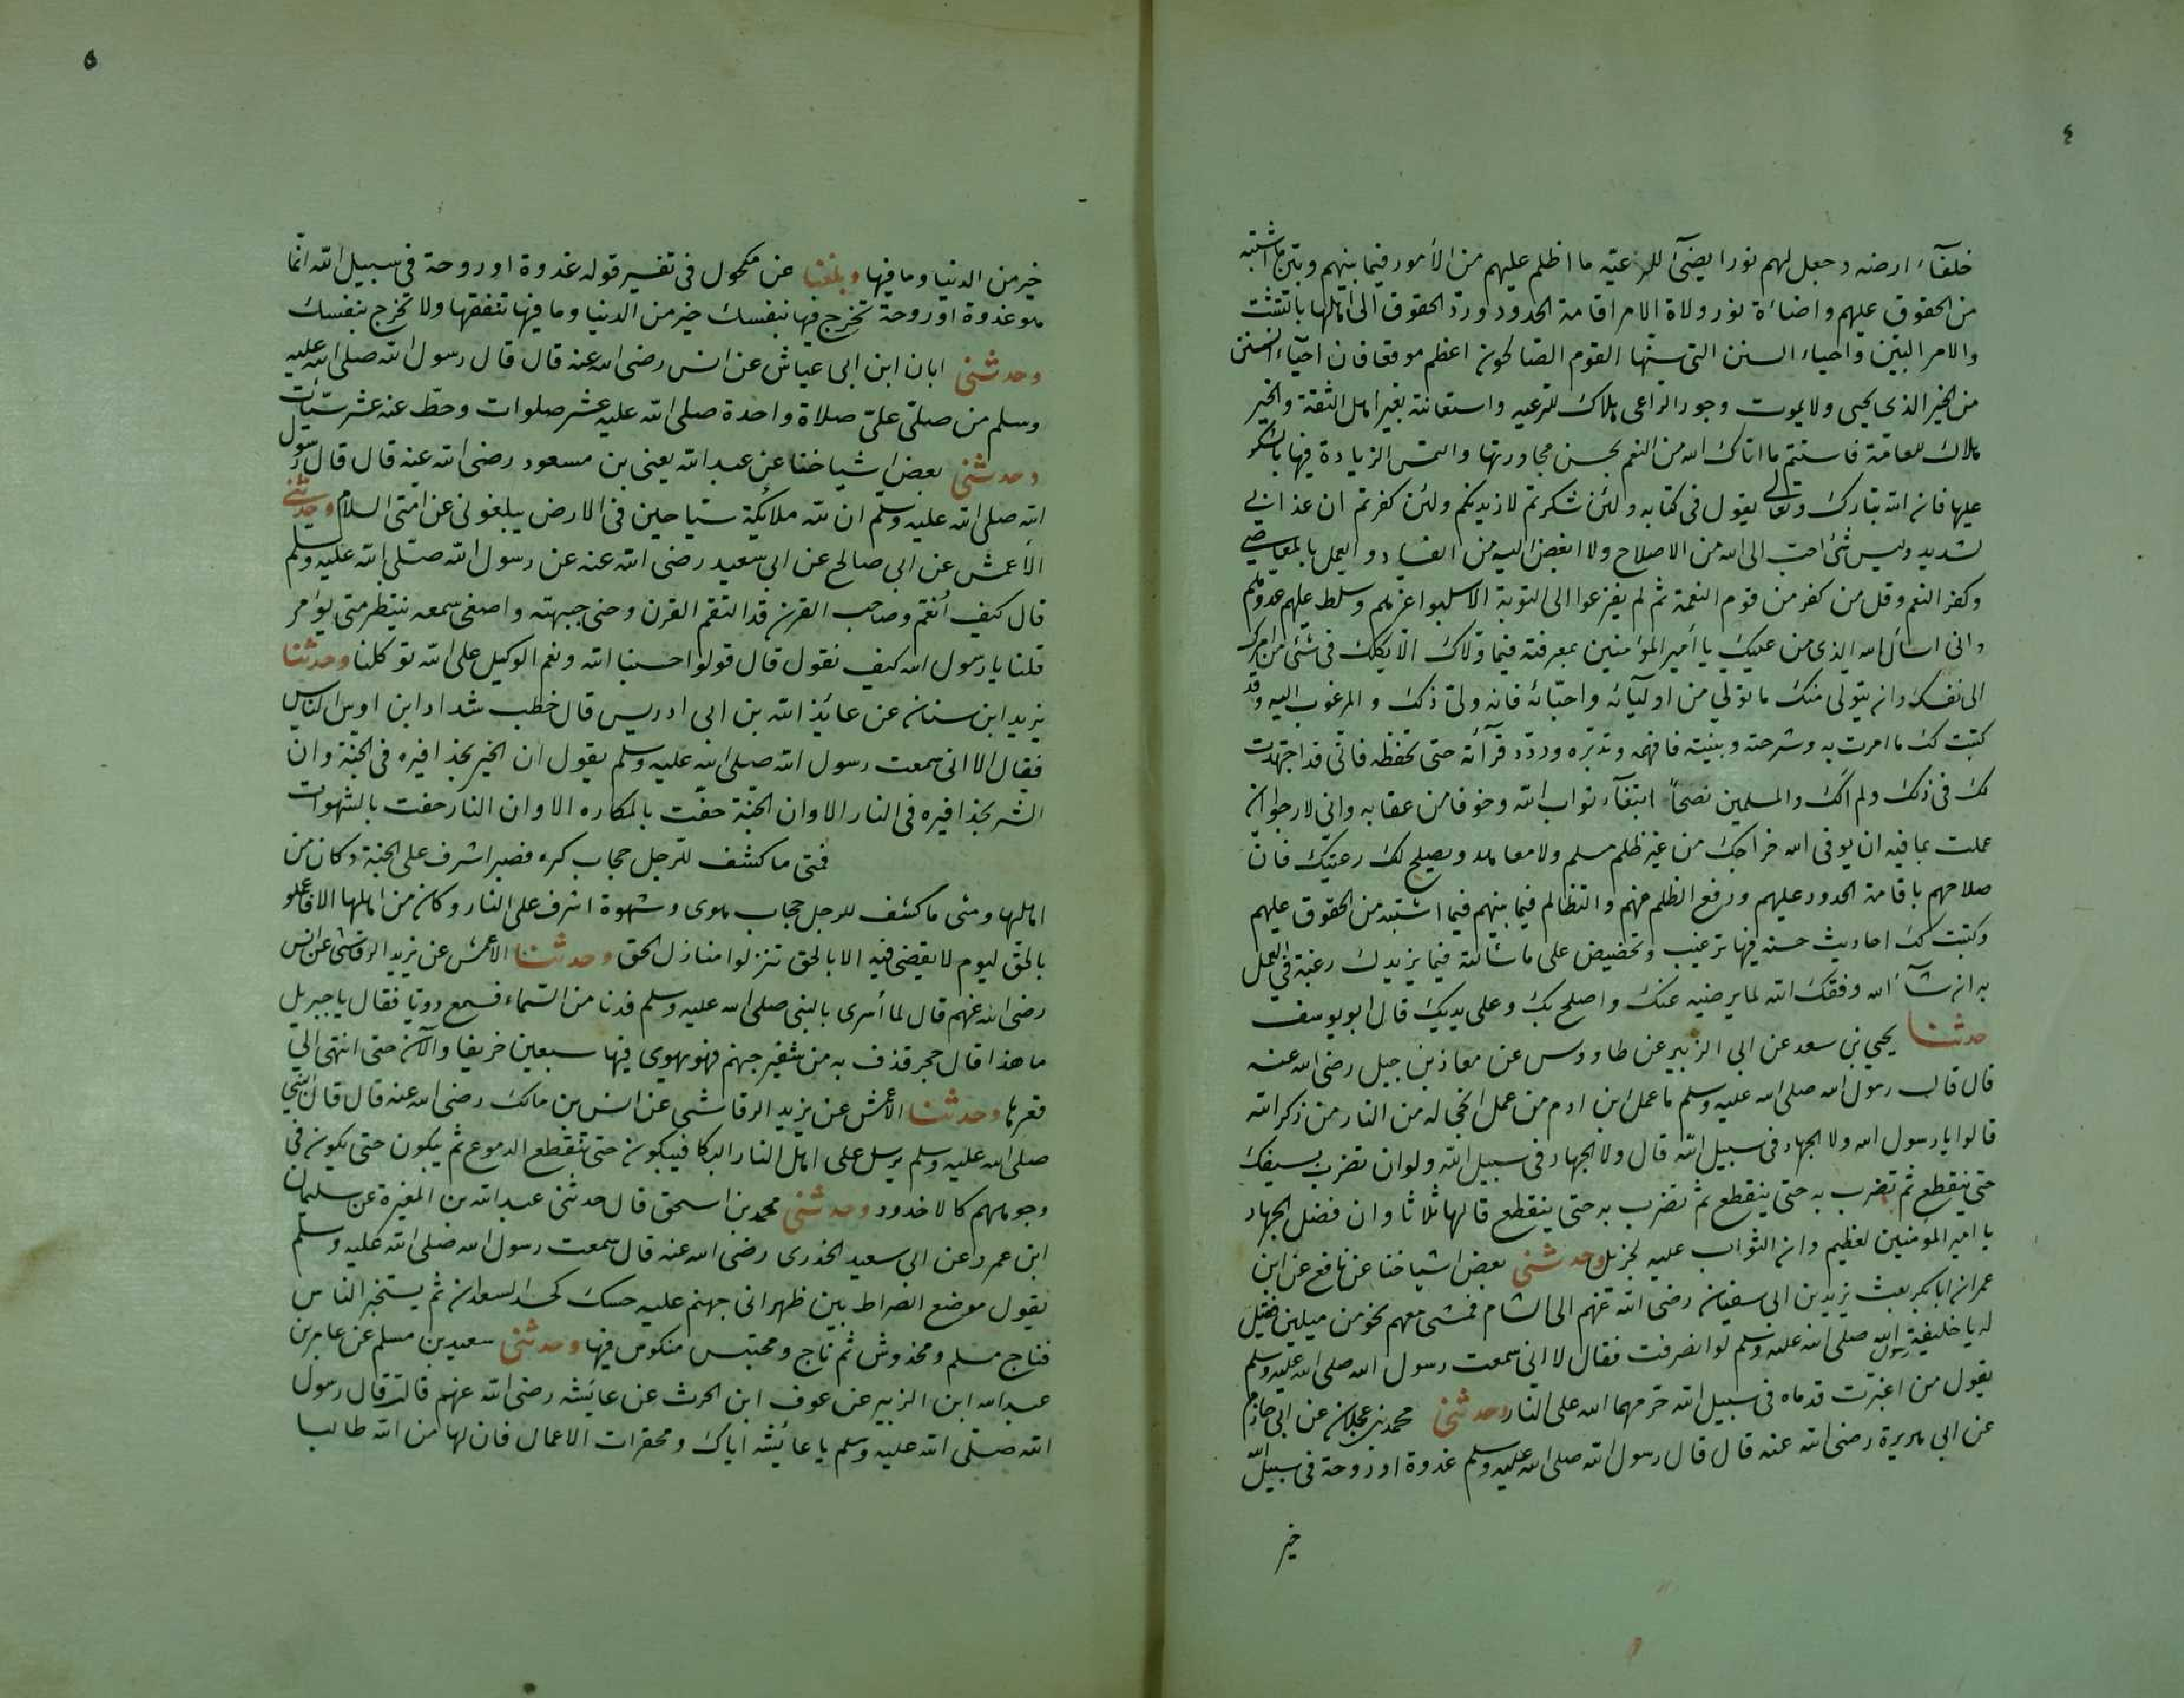 ٤
خلفاء ارضه وجعل لهم نورا يضئ للرعيّة ما اظلم عليهم من الأمور فيما بينهم وبيّن ما اشتبه
من الحقوق عليهم واضائة نور ولاة الامر اقامة الحدود وردّ الحقوق الى اهلها بالتثبّت
والامر البيّن واحياء السنن التي سنها القوم الصالحون اعظم موقعا فان احياء السنن
من الخير الذى يحيى ولا يموت وجور الراعى هلاك للرعيه واستعانته بغير اهل الثقة والخير
هلاك للعامّة فاستتم ما اتاك الله من النعم بحسن مجاورتها والتمس الزيادة فيها بالشكر
عليها فان الله تبارك وتعالى يقول فى كتابه ولئن شكرتم لازيدنكم ولئن كفرتم ان عذابي
لشديد وليس شئ احب الى الله من الاصلاح ولا ابغض اليه من الفساد والعمل بالمعاصي
وكفر النعم وقل من كفر من قوم النعمة ثم لم يفزعوا الى التوبة الا سلبوا عزهم وسلط عليهم عدوهم
وانى اسأل الله الذى من عليك يا أمير المؤمنين بمعرفته فيما ولاك الا يكلك فى شئ من امرك
الى نفسك وان يتولى منك ما تولي من اوليائه واحبّائه فانه ولىّ ذلك والمرغوب اليه وقد
كتبت لك ما امرت به وشرحته وبينته فافهمه وتدبّره وردّد قرآئة حتى تحفظه فانّى قد اجتهدت
لك فى ذلك ولم الك والمسلمين نصحاً ابتغآء ثواب الله وخوفا من عقابه وانى لارجوا ان
عملت بما فيه ان يوفى الله خراجك من غير ظلم مسلم ولا معاهد ويصلح لك رعيّتك فانّ
صلاحهم باقامة الحدود عليهم ورفع الظلم عنهم والتظالم فيما بينهم فيما اشتبه من الحقوق عليهم
وكتبت لك احاديث حسنه فيها ترغيب وتحضيض على ما سألت فيما يزيدك رغبة فى العمل
به ان شآء الله وفقك الله لما يرضيه عنك واصلح بك وعلى يديك قال ابو يوسف
حدثنا يحيي بن سعد عن ابى الزبير عن طاووس عن معاذ بن جبل رضى الله عنه
قال قال رسول الله صلى الله عليه وسلم ما عمل ابن ادم من عمل انجى له من النار من ذكر الله
قالوا يا رسول الله ولا الجهاد فى سبيل الله قال ولا الجهاد فى سبيل الله ولو ان تضرب بسيفك
حتى ينقطع ثم تضرب به حتى ينقطع ثم تضرب به حتى ينقطع قالها ثلاثا وان فضل الجهاد
يا امير المؤمنين لعظيم وان الثواب عليه لجزيل وحدثنى بعض اشياخنا عن نافع عن ابن
عمر ان ابا بكر بعث يزيد بن ابى سفيان رضى الله عنهم الى الشام فمشى معهم نحو من ميلين فقيل
له يا خليفة رسول الله صلى الله عليه وسلم لو انصرفت فقال لا انى سمعت رسول الله صلى الله عليه وسلم
يقول من اغبرّت قدماه فى سبيل الله حرّمهما الله على النار وحدثنى محمد بن عجلان عن ابى حازم
عن ابى هريرة رضى الله عنه قال قال رسول الله صلى الله عليه وسلم غدوة او روحة فى سبيل الله
خير
٥
خير من الدنيا وما فيها وبلغنا عن مكحول فى تفسير قوله غدوة او روحة فى سبيل الله انّما
هو غدوة او روحة تخرج فيها بنفسك خير من الدنيا وما فيها تنفقها ولا تخرج بنفسك
وحدثنى ابان ابن ابى عياش عن انس رضى الله عنه قال قال رسول الله صلى الله عليه
وسلم من صلّى علىّ صلاة واحدة صلى الله عليه عشر صلوات وحطّ عنه عشر سيّآت
وحدثنى بعض اشياخنا عن عبد الله يعنى بن مسعود رضى الله عنه قال قال رسول
الله صلى الله عليه وسلم ان لله ملائكة سيّاحين فى الارض يبلغونى عن امّتى السلام وحدثنى
الأعمش عن ابى صالح عن ابى سعيد رضى الله عنه عن رسول الله صلى الله عليه وسلم
قال كيف أنعم وصاحب القرن قد التقم القرن وحنى جبهته واصغى سمعه ينتظر متى يؤامر
قلنا يا رسول الله كيف نقول قال قولوا حسبنا الله ونعم الوكيل على الله توكلنا وحدثنا
يزيد ابن سنان عن عائذ الله بن ابى ادريس قال خطب شداد ابن اوس الناس
فقال الا انى سمعت رسول الله صلى الله عليه وسلم يقول ان الخير بحذافيره فى الجنّة وان
الشر بحذافيره فى النار الا وان الجنّة حفّت بالمكاره الا وان النار حفت بالشهوات
فمتى ما كشف للرجل حجاب كره فصبر اشرف على الجنة وكان من
اهلها ومتى ما كشف للرجل حجاب هوى وشهوة اشرف على النار وكان من اهلها الا فاعملو
بالحق ليوم لا يقضى فيه الا بالحق تنزلوا منازل الحق وحدثنا الاعمش عن يزيد الرقاشى عن انس
رضى الله عنهم قال لما أسرى بالنبى صلى الله عليه وسلم فدنا من السّماء فسمع دويّا فقال يا جبريل
ما هذا قال حجر قذف به من شفير جهنم فهو يهوى فيها سبعين خريفا والآن حتى انتهى الى
قعرها وحدثنا الأعمش عن يزيد الرقاشى عن انس بن مالك رضى الله عنه قال قال النبي
صلى الله عليه وسلم يرسل على اهل النار البكا فيبكون حتى تنقطع الدموع ثم يبكون حتى يكون فى
وجوههم كالاخدود وحدثنى محمد بن اسحق قال حدثنى عبد الله بن المغيرة عن سليمان
ابن عمرو عن ابى سعيد الخدرى رضى الله عنه قال سمعت رسول الله صلى الله عليه وسلم
يقول موضع الصراط بين ظهرانى جهنم عليه حسك كحسك السعدان ثم يستجيز الناس
فناج مسلم ومخدوش ثم ناج ومحتبس منكوس فيها وحدثنى سعيد بن مسلم عن عامر بن
عبد الله ابن الزبير عن عوف ابن الحرث عن عائشه رضى الله عنهم قالت قال رسول
الله صلّى الله عليه وسلم يا عائشه اياك ومحقرات الاعمال فان لها من الله طالبا